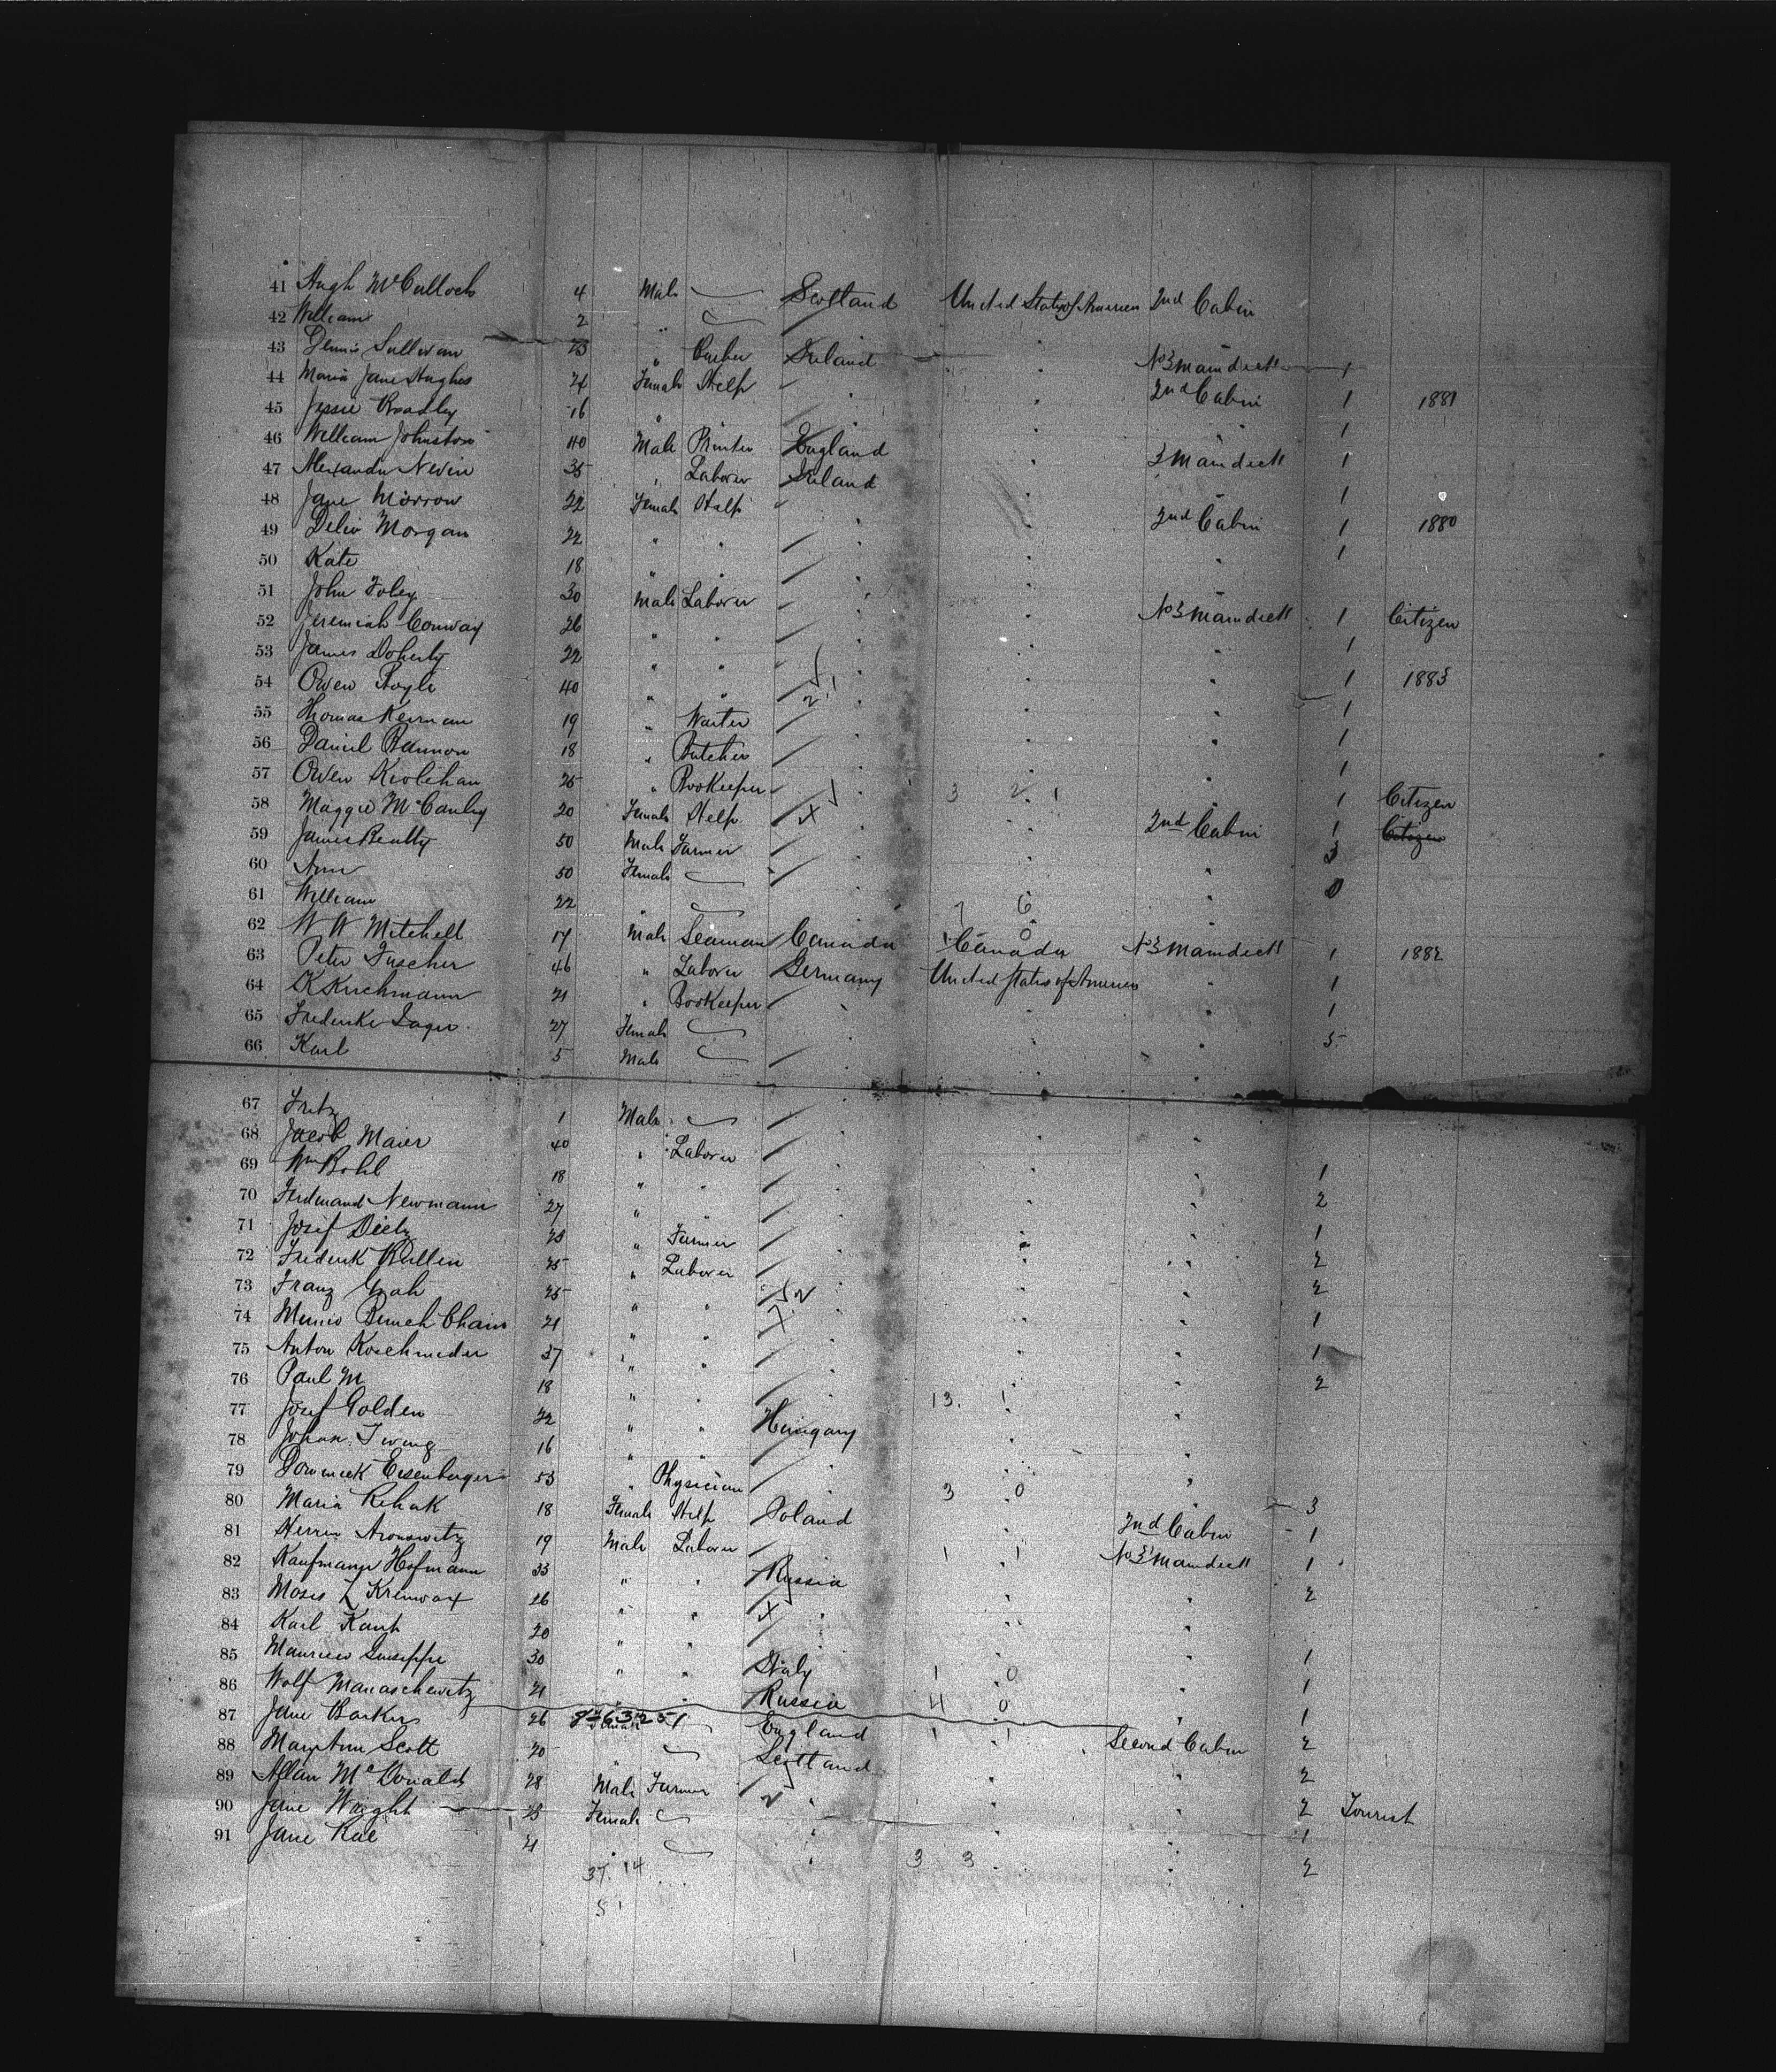 41 Hugh McCulloch 4 Male Scotland United States of America 2nd Cabin
42 William 2 "
43 Dennis Sullivan 23 " Ireland " No 3 Maindeck 1
44 Maria Jane Hughes 24 Female Help " 2nd Cabin 1 1881
45 Jessie Bradley 16 " " " 1
46 William Johnston 40 Male Printer England " 3 Maindeck 1
47 Alexander Nevin 35 " Laborer Ireland " " 1
48 Jane Morrow 22 Female Help " " 2nd Cabin 1 1880
49 Delia Morgan 22 " " " " 1
50 Kate 18 " " " "
51 John Foley 30 Male Laborer " No 3 Maindeck 1 Citizen
52 Jeremiah Conway 26 " " " " 1
53 James Doherty 22 " " " " 1 1883
54 Owen Boyle 40 " " " " 1
55 Thomas Keirnan 19 " Waiter " " 1
56 Daniel Bannon 18 " Butcher " " 1
57 Owen 25 " Bookeeper " " 1 Citizen
58 Maggie McCauley 20 Female Help " 2nd Cabin 1 Citizen
59 James Beatty 50 Male Farmer " " 3
60 Ann 50 Female " " 0
61 William 22 " "
62 W W Mitchell 17 Male Seaman Canada Canada No 3 Maindeck 1 1882
63 Peter Fuscher 46 " Laborer Germany United States of America " 1
64 K Kirchmann 21 " Bookeeper " " 1
65 Frederike Lager 27 Female " " 5
66 Karl 5 Male " "
67 Fritz 1 Male " "
68 Jacob Maier 40 " Laborer " "
69 Wm Bohl 18 " " " " 1
70 Ferdinand Newmann 27 " " " " 2
71 Josef Dietz 28 " Farmer " " 1
72 Frederik Bullen 25 " Laborer " " 2
73 Franz 25 " " " " 2
74 21 " " " " 1
75 Anton Koschmeder 37 " " " " 1
76 Paul M 18 " " " " 2
77 Josef Golden 22 " " Hungary " "
78 Johan 16 " " " "
79 Dominick Eisenberger 53 " Physician " " 3
80 Maria Rehak 18 Female Help Poland " 2nd Cabin 1
81 Aronswitz 19 Male Laborer " No 3 Maindeck 1
82 Kaufmann Hofmann 33 " " Russia " " 2
83 Moses L 26 " " " "
84 Karl 20 " " " " 1
85 Giuseppe 30 " " Italy " " 1
86 Wolf Manaschewitz 21 " " Russia " " 1
87 Jane Barker 26 Female England " Second Cabin 2
88 Mary Ann Scott 20 " Scotland " " 2
89 Allan McDonald 28 Male Farmer " " 2 Tourist
90 Jane Wright 23 Female " " 1
91 Jane Rae 21 " " " 2
37 14
51